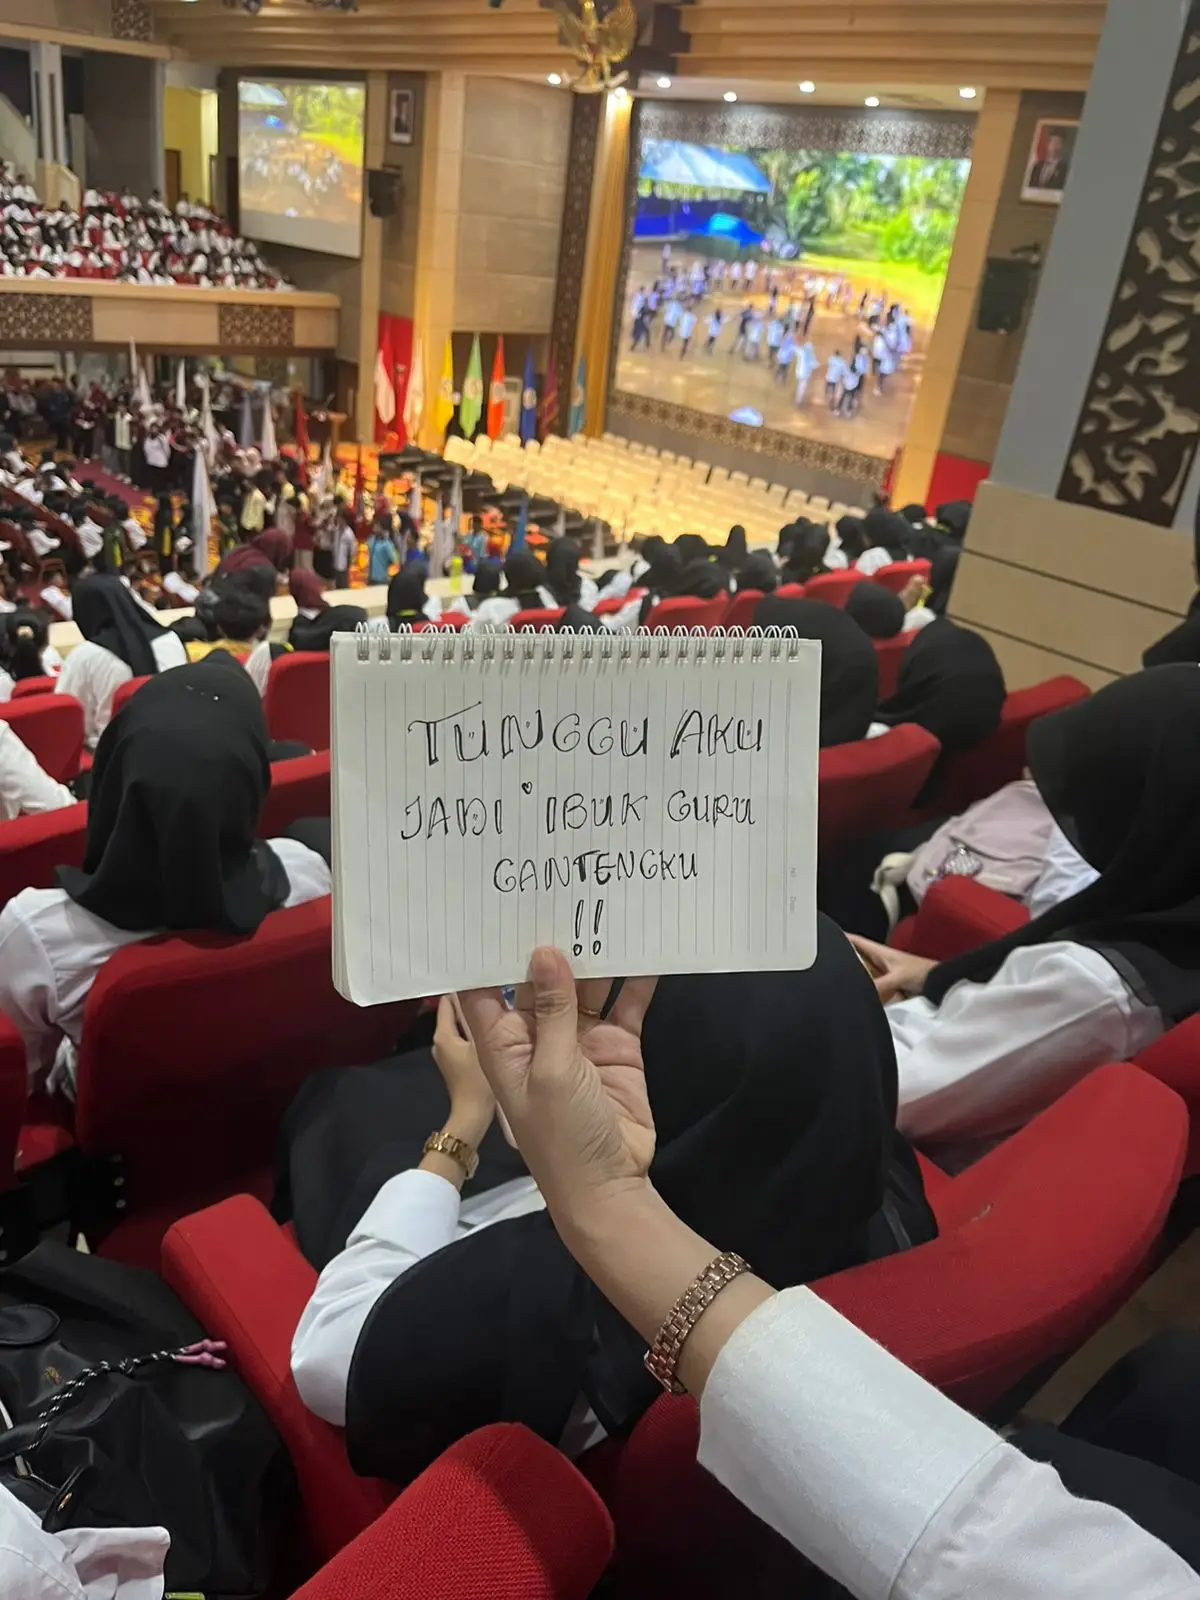 TUNGGU AKU
JADI IBUK GURU
GANTENGKU
!!